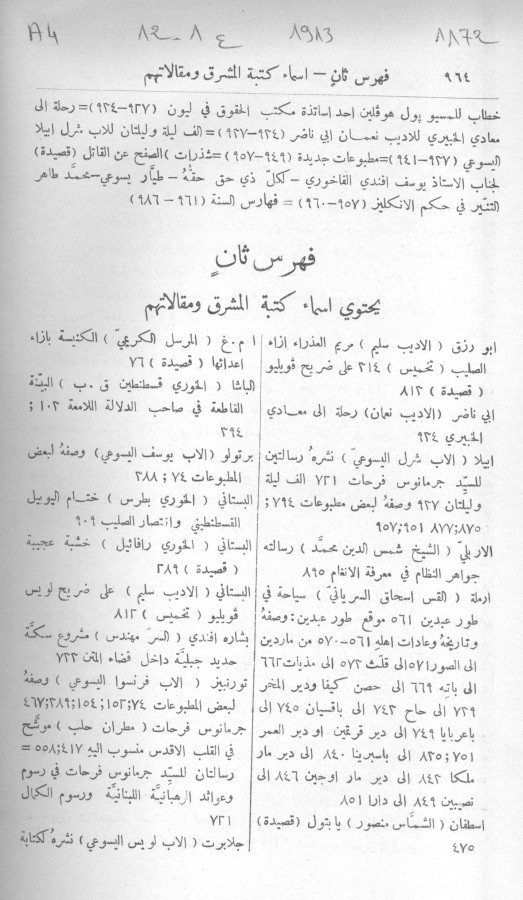 A4 12-1 ع 1913 1172
٩٦٤ فهرس ثانٍ – اسماء كتبة المشرق ومقالاتهم
خطاب للمسيو پول هوڤلين احد اساتذة مكتب الحقوق في ليون (٩٢٧–٩٢٤)= رحلة الى
معادي الخبيري للاديب نعمان ابي ناضر (٩٢٤–٩٢٧)= الف ليلة وليلتان للاب شرل ابيلا
اليسوعي (٩٢٧–٩٤١)= مطبوعات جديدة (٩٤٩–٩٥٧)= شذرات) الصفح عن القاتل (قصيدة)
لجناب الاستاذ يوسف افندي الفاخوري – لكلّ ذي حق حقّهُ – طيَّار يسوعي – محمَّد طاهر
التنّير في حكم الانكليز (٩٥٧–٩٦٠) = فهارس السنة (٩٦١ – ٩٨٦)
فهرس ثانٍ
يحتوي اسماء كتبة المشرق ومقالاتهم
ابو رزق (الاديب سليم) مريم العذراء ازاء
الصليب (تخميس) ٢١٤ على ضريح ڤويليو
(قصيدة) ٨١٢
ابي ناضر (الاديب نعمان) رحلة الى معادي
الخبيري ٩٢٤
ابيلا (الاب شرل اليسوعيّ) نشرهُ رسالتين
للسيّد جرمانوس فرحات ٧٢١ الف ليلة
وليلتان ٩٢٧ وصفهُ لبعض مطبوعات ٧٩٤;
٨٧٥; ٨٧٧ ٩٥١; ٩٥٧
الاربليّ (الشيخ شمس الدين محمَّد) رسالته
جواهر النظام في معرفة الانغام ٨٩٥
ارملة (القس اسحاق السريانيّ) سياحة في
طور عبدين ٥٦١ موقع طور عبدين: وصفهُ
وتاريخهُ وعادات اهلهِ ٥٦١–٥٧٠ من ماردين
الى الصور ٥٧١ الى قلّث ٥٧٢ الى مذيات ٦٦٢
الى باتِه ٦٦٩ الى حصن كيفا ودير المخر
٧٣٩ الى حاح ٧٤٢ الى باقسيان ٧٤٥ الى
باعربايا ٧٤٩ الى دير قرتمين او دير العمر
٧٥١; ٨٣٥ الى باسبرينا ٨٤٠ الى دير مار
ملكا ٨٤٢ الى دير مار اوجين ٨٤٦ الى
نصيبين ٨٤٩ الى دارا ٨٥١
اسطفان (الشمَّاس منصور) يا بتول (قصيدة)
٤٧٥
ا م. غ (المرسل الكريميّ) الكنيسة بازاء
اعدائها (قصيدة) ٧٦
الباشا (الخوري قسطنطين ق. ب) البيّنة
القاطعة في صاحب الدلالة اللامعة ١٠٢;
٢٩٤
برتولو (الاب يوسف اليسوعي) وصفهُ لبعض
المطبوعات ٧٤; ٣٨٨
البستاني (الخوري بطرس) ختام اليوبيل
القسطنطيني وانتصار الصليب ٩٠٩
البستاني (الخوري رافائيل) خشبة عجيبة
(قصيدة) ٢٨٩
البستاني (الاديب سليم) على ضريح لويس
ڤويليو (تخميس) ٨١٢
بشاره افندي (السرّ مهندس) مشروع سكّة
حديد جبليَّة داخل قضاء المتن ٧٢٢
تورنبيز (الاب فرنسوا اليسوعي) وصفهُ
لبعض المطبوعات ٧٤; ١٥٢; ١٥٤; ٢٨٩; ٤٦٧
جرمانوس فرحات (مطران حلب) موشَّح
في القلب الاقدس منسوب اليهِ ٤١٧; ٥٥٨ =
رسالتان للسيّد جرمانوس فرحات في رسوم
وعوائد الرهبانيَّة اللبنانيَّة ورسوم الكمال
٧٢١
جلابرت (الاب لويس اليسوعي) نشرهُ لكتابة